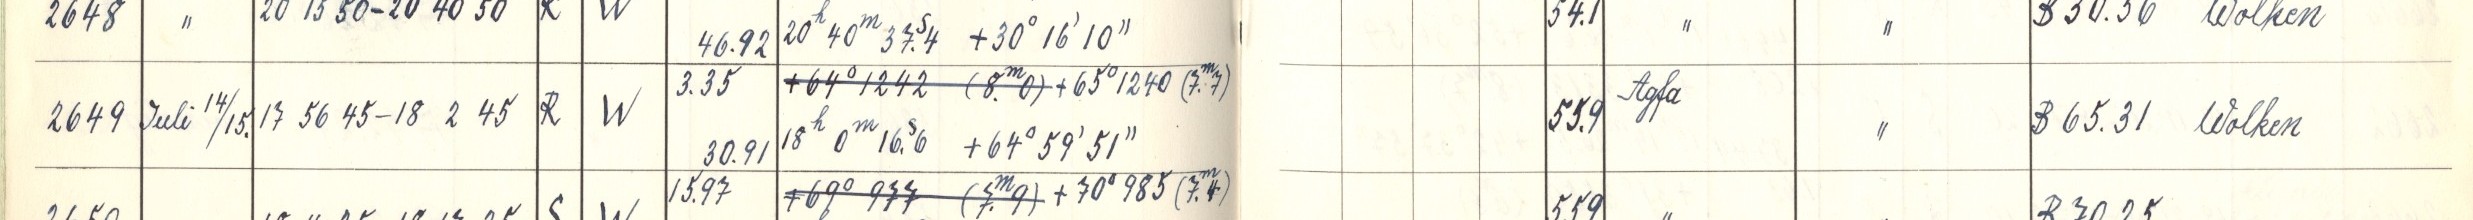 2648 " 20 15 50-20 40 50 R W 54.1 " " B 30.36 Wolken
46.92 20h 40m 37.s4 +30° 16' 10"
3.35 +64° 1242 (8.m0) +65° 1240 (7.m7)
2649 Juli 14/15. 17 56 45-18 2 45 R W 55.9 Agfa " B 65.31 Wolken
30.91 18h 0m 16.s6 +64° 59' 51"
15.97 +69° 977 (7.m9) +70° 985 (7.m4)
2650 S W 55.9 " B 70.25